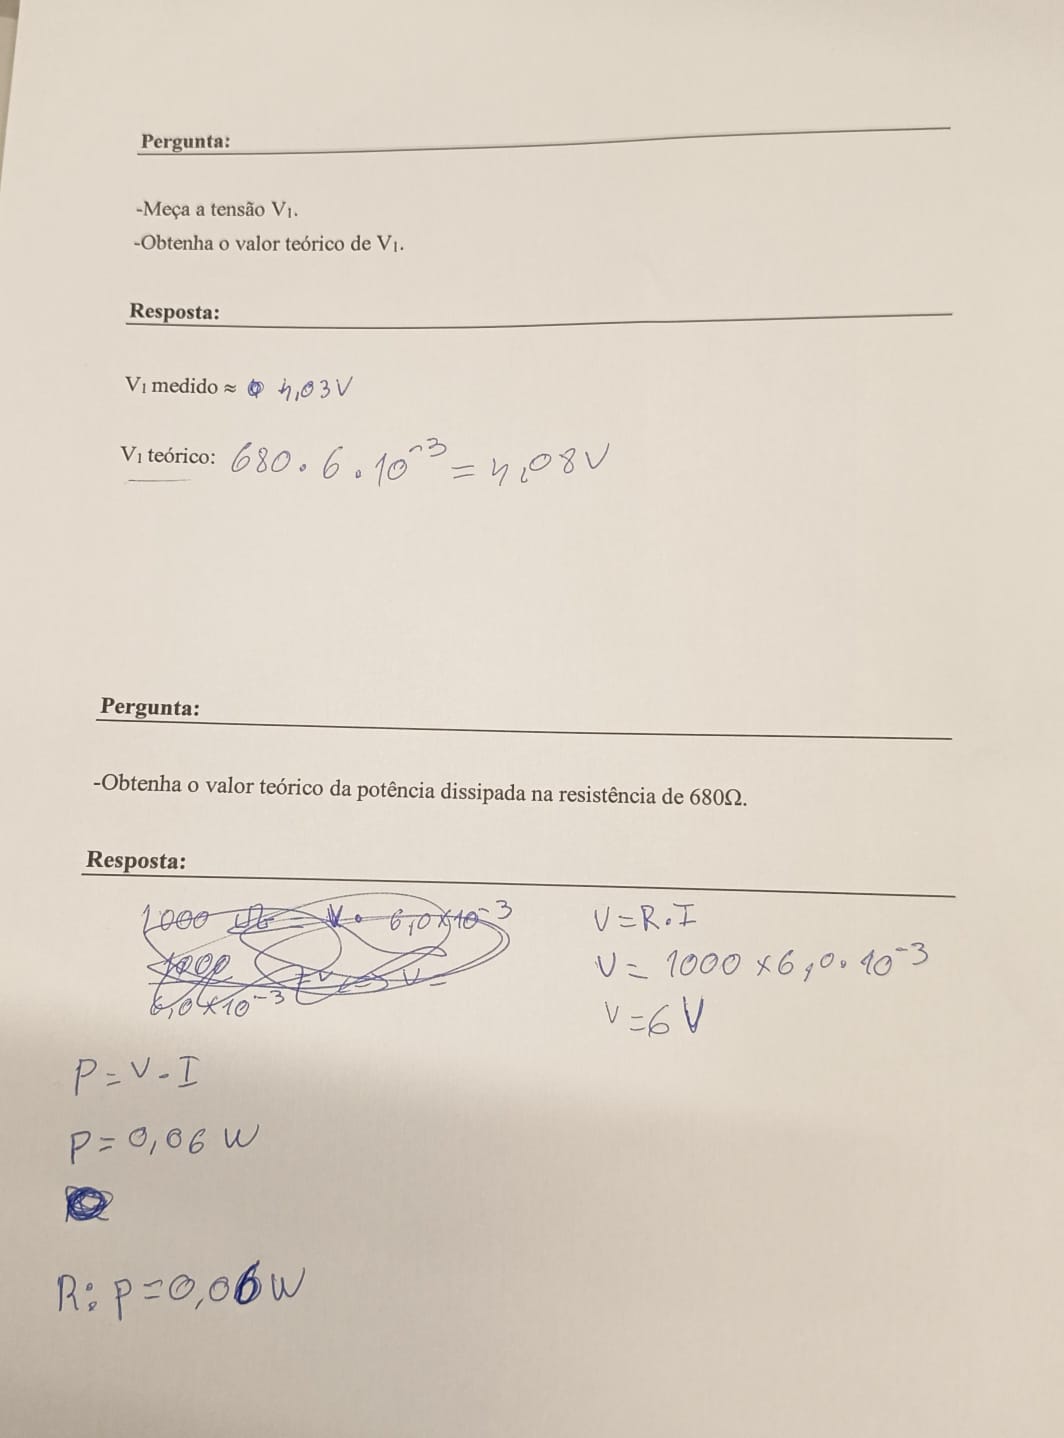 Pergunta:
-Meça a tensão V₁.
-Obtenha o valor teórico de V₁.
Resposta:
V₁ medido ≈ 4,03V
V₁ teórico: 680 . 6 . 10⁻³ = 4,08V
Pergunta:
-Obtenha o valor teórico da potência dissipada na resistência de 680Ω.
Resposta:
1000 Ω = V . 6,0×10⁻³
1000
6,0×10⁻³ = V <=> V =
V = R.I
V = 1000 × 6,0 . 10⁻³
V = 6 V
P = V . I
P = 0,06 W
R: P = 0,06 W